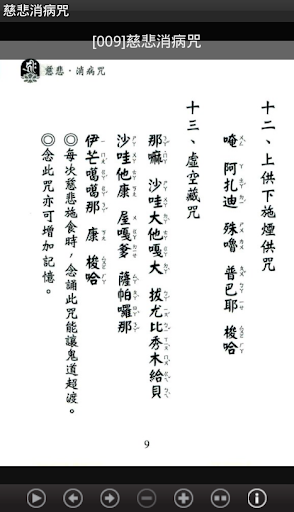 慈悲消病咒
[009]慈悲消病咒
慈悲·消病咒
十二、上供下施煙供咒
唵 阿扎迪 殊嚕 普巴耶 梭哈
十三、虛空藏咒
那嘛 沙哇大他嘎大 拔尤比秀木給貝
沙哇他康 屋嘎爹 薩帕囉那
伊芒噶噶那 康 梭哈
◎每次慈悲施食時，念誦此咒能讓鬼道超渡。
◎念此咒亦可增加記憶。
9